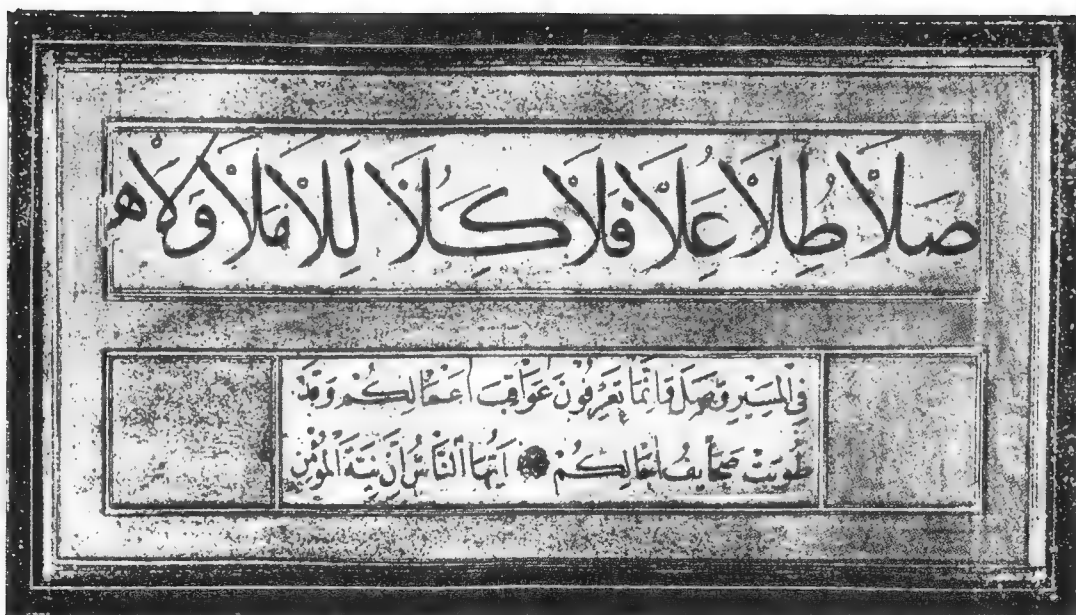 صَلاَ طُلاَ عِلاَ فلاَ كِلاَ لِلاَ مَلاَ وَلاه
فِي الْمَسِيْرِ وَاِنَّمَا تَعْرِفُوْنَ عَوَاقِبَ اَعْمَالِكُمْ وَقَدْ
طُوِيَتْ صَحَايِفُ اٰجَالِكُمْ اَيُّهَا النَّاسُ اِنَّ نِيَّةَ الْمُؤْمِنِ